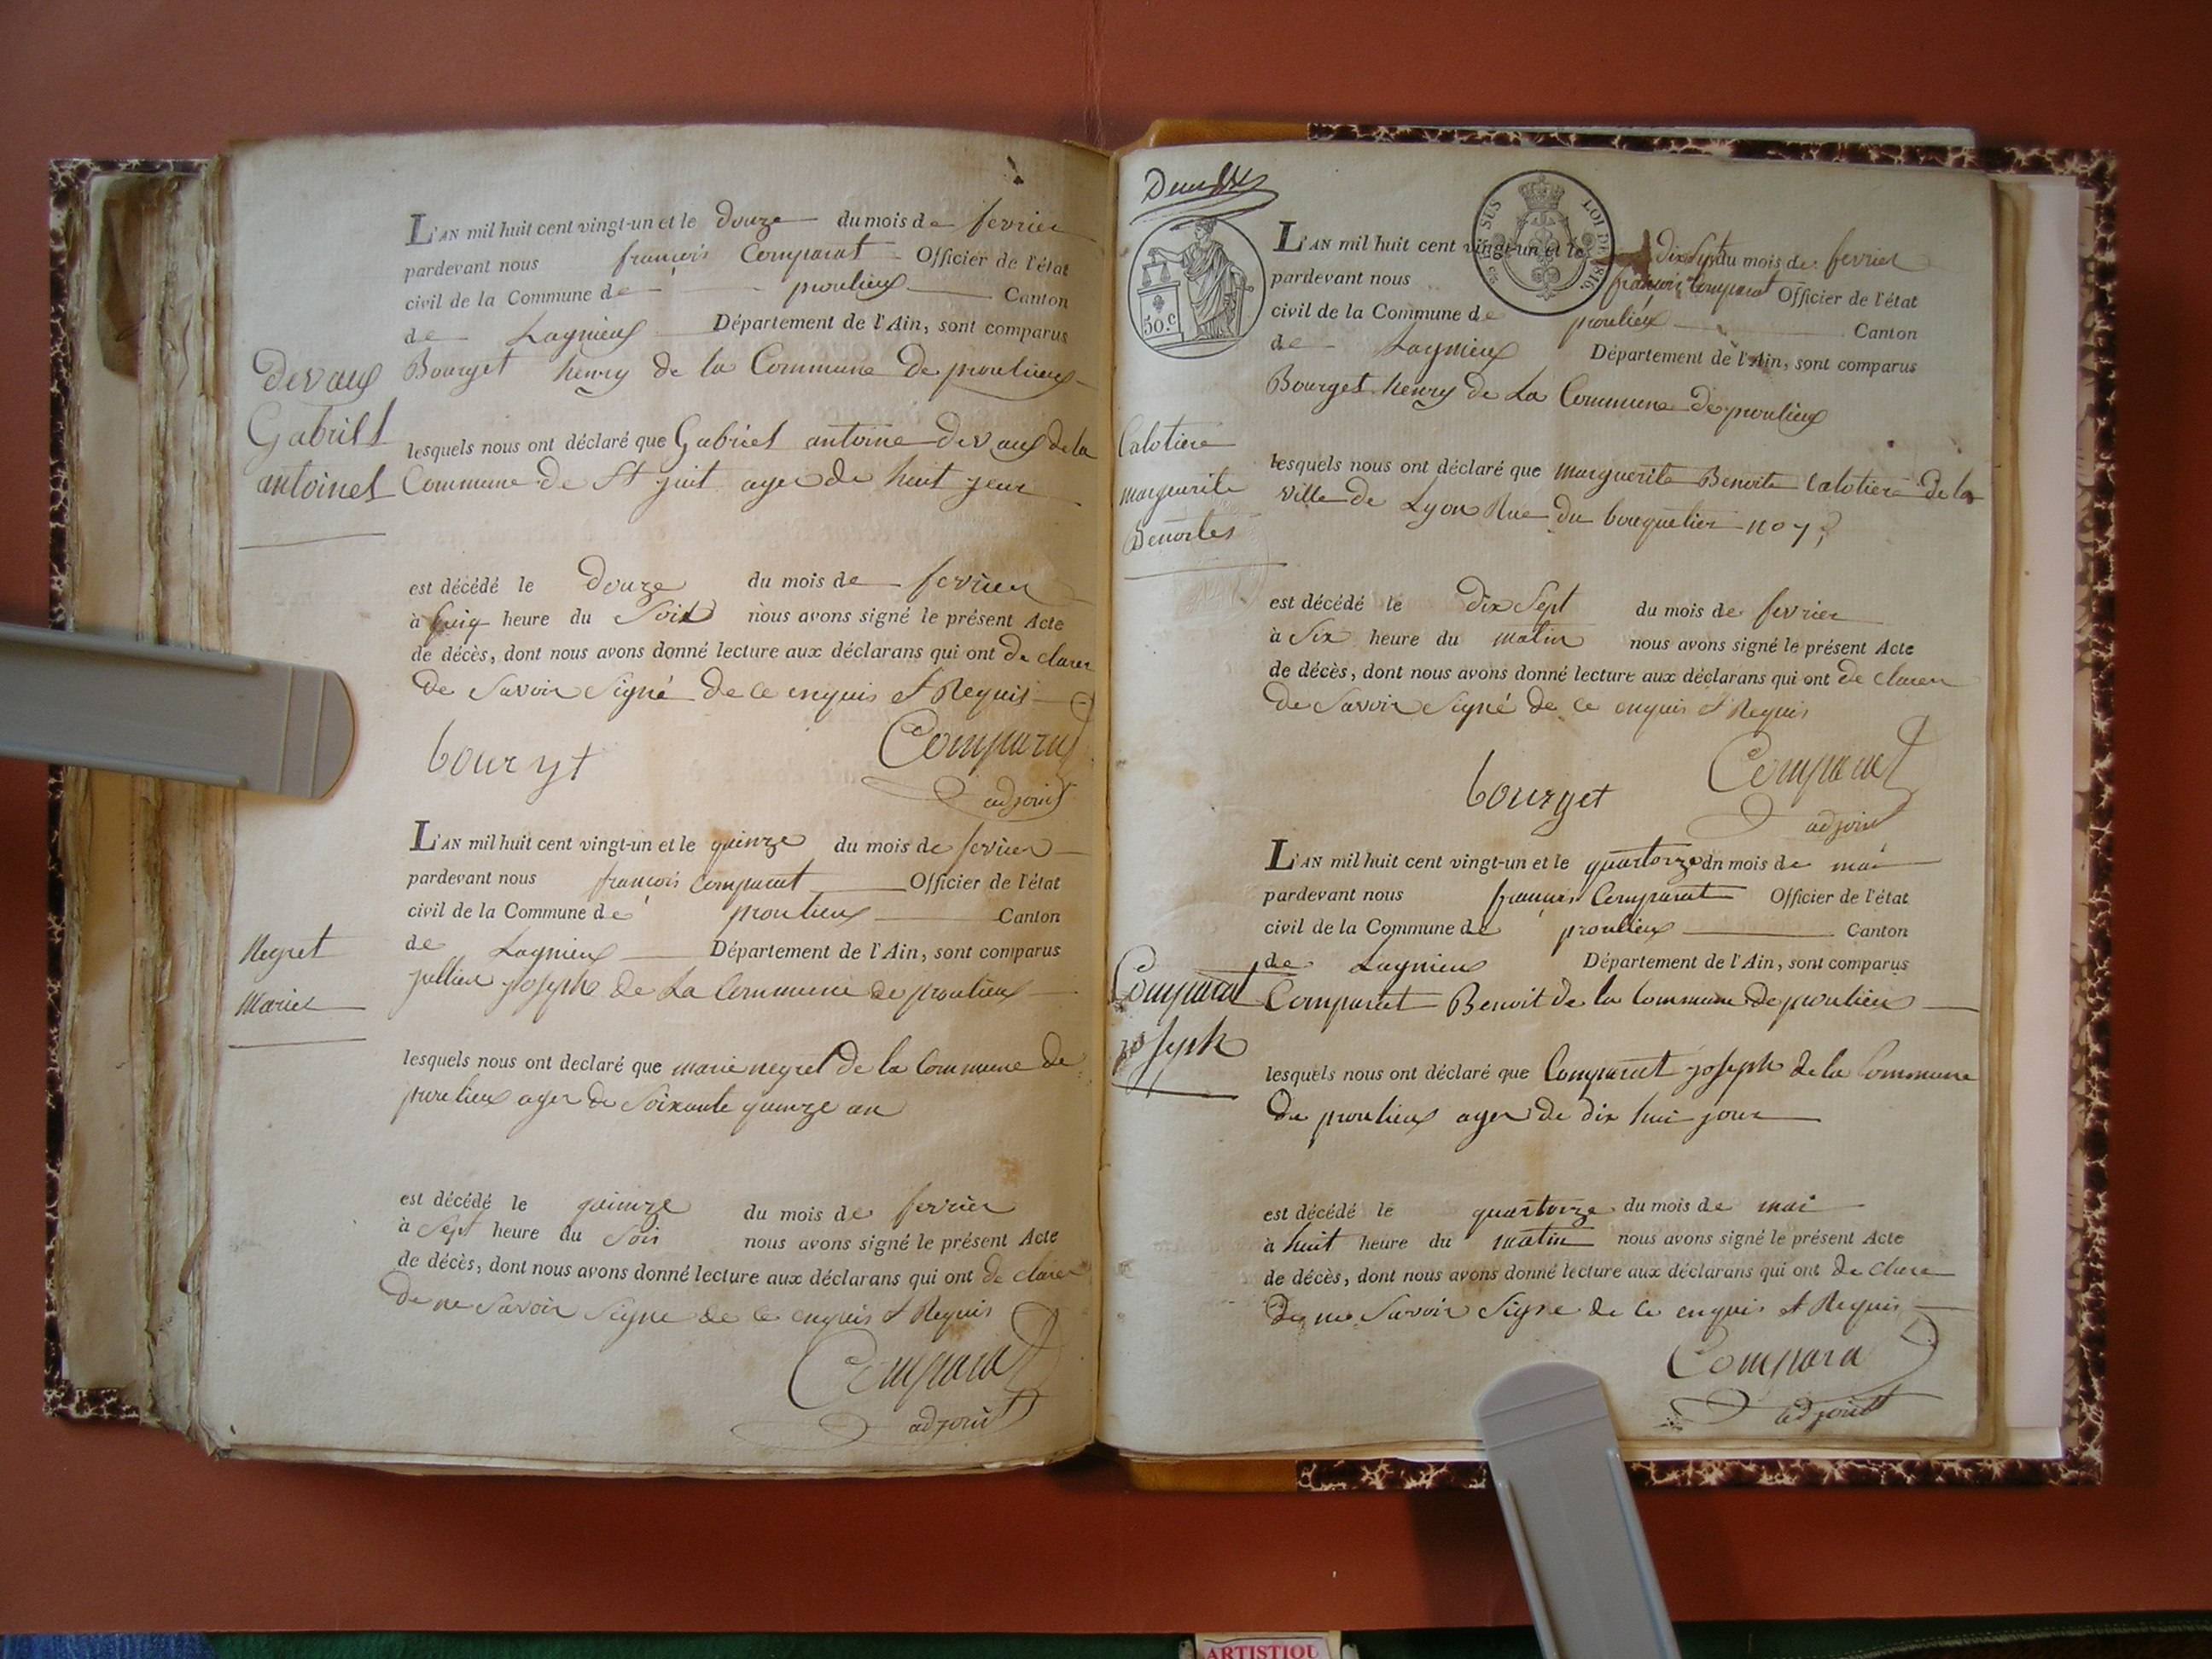 L'AN mil huit cent vingt-un et le douze du mois de fevrier
pardevant nous françois Comparat Officier de l'état
civil de la Commune de proulieux Canton
de Lagnieux Département de l'Ain, sont comparus
Bourget henry de la Commune De proulieux
devaux
Gabriel
antoinet
lesquels nous ont déclaré que Gabriel antoine devaux de la
Commune de St juit ager de huit jour
est décédé le douze du mois de fevrier
à heure du Soir nous avons signé le présent Acte
de décès, dont nous avons donné lecture aux déclarans qui ont de clarer
De Savoir Signé de ce enquis et Requis
bouryt
Comparat
adjoint
L'AN mil huit cent vingt-un et le quinze du mois de fevrier
pardevant nous francois Comparat Officier de l'état
civil de la Commune de proulieux Canton
de Lagnieux Département de l'Ain, sont comparus
jullien joseph de La Commune de proulieux
Negret
Mariee
lesquels nous ont declaré que marie negret de la Commune de
proulieux ager de Soixante quinze an
est décédé le quinze du mois de fevrier
à Sept heure du Soir nous avons signé le présent Acte
de décès, dont nous avons donné lecture aux déclarans qui ont de clarer
De ne Savoir Signe de ce enquis et Requis
Comparat
adjoint
50.c
SUS LOI DE 1816.
L'AN mil huit cent vingt-un et le dix Sept du mois de fevrier
pardevant nous françois Comparat Officier de l'état
civil de la Commune de proulieux Canton
de Lagnieux Département de l'Ain, sont comparus
Bourget henry de La Commune de proulieux
Calotiere
marguerite
Benoites
lesquels nous ont déclaré que marguerite Benoite Calotiere de la
ville de Lyon Rue du bouquelier no 7
est décédé le dix Sept du mois de fevrier
à Six heure du matin nous avons signé le présent Acte
de décès, dont nous avons donné lecture aux déclarans qui ont de claren
de Savoir Signé de ce enquis et Requis
bourget
Comparat
adjoint
L'AN mil huit cent vingt-un et le quartorze du mois de mai
pardevant nous françois Comparat Officier de l'état
civil de la Commune de proulieux Canton
de Lagnieux Département de l'Ain, sont comparus
Comparat Benoit de la Commune de proulieux
Comparat
joseph
lesquels nous ont déclaré que Comparat joseph de la Commune
De proulieux ager de dix hui jour
est décédé le quartorze du mois de mai
à huit heure du matin nous avons signé le présent Acte
de décès, dont nous avons donné lecture aux déclarans qui ont de clare
De ne Savoir Signe de ce enquis et Requis
Compara
adjoint
ARTISTIQU